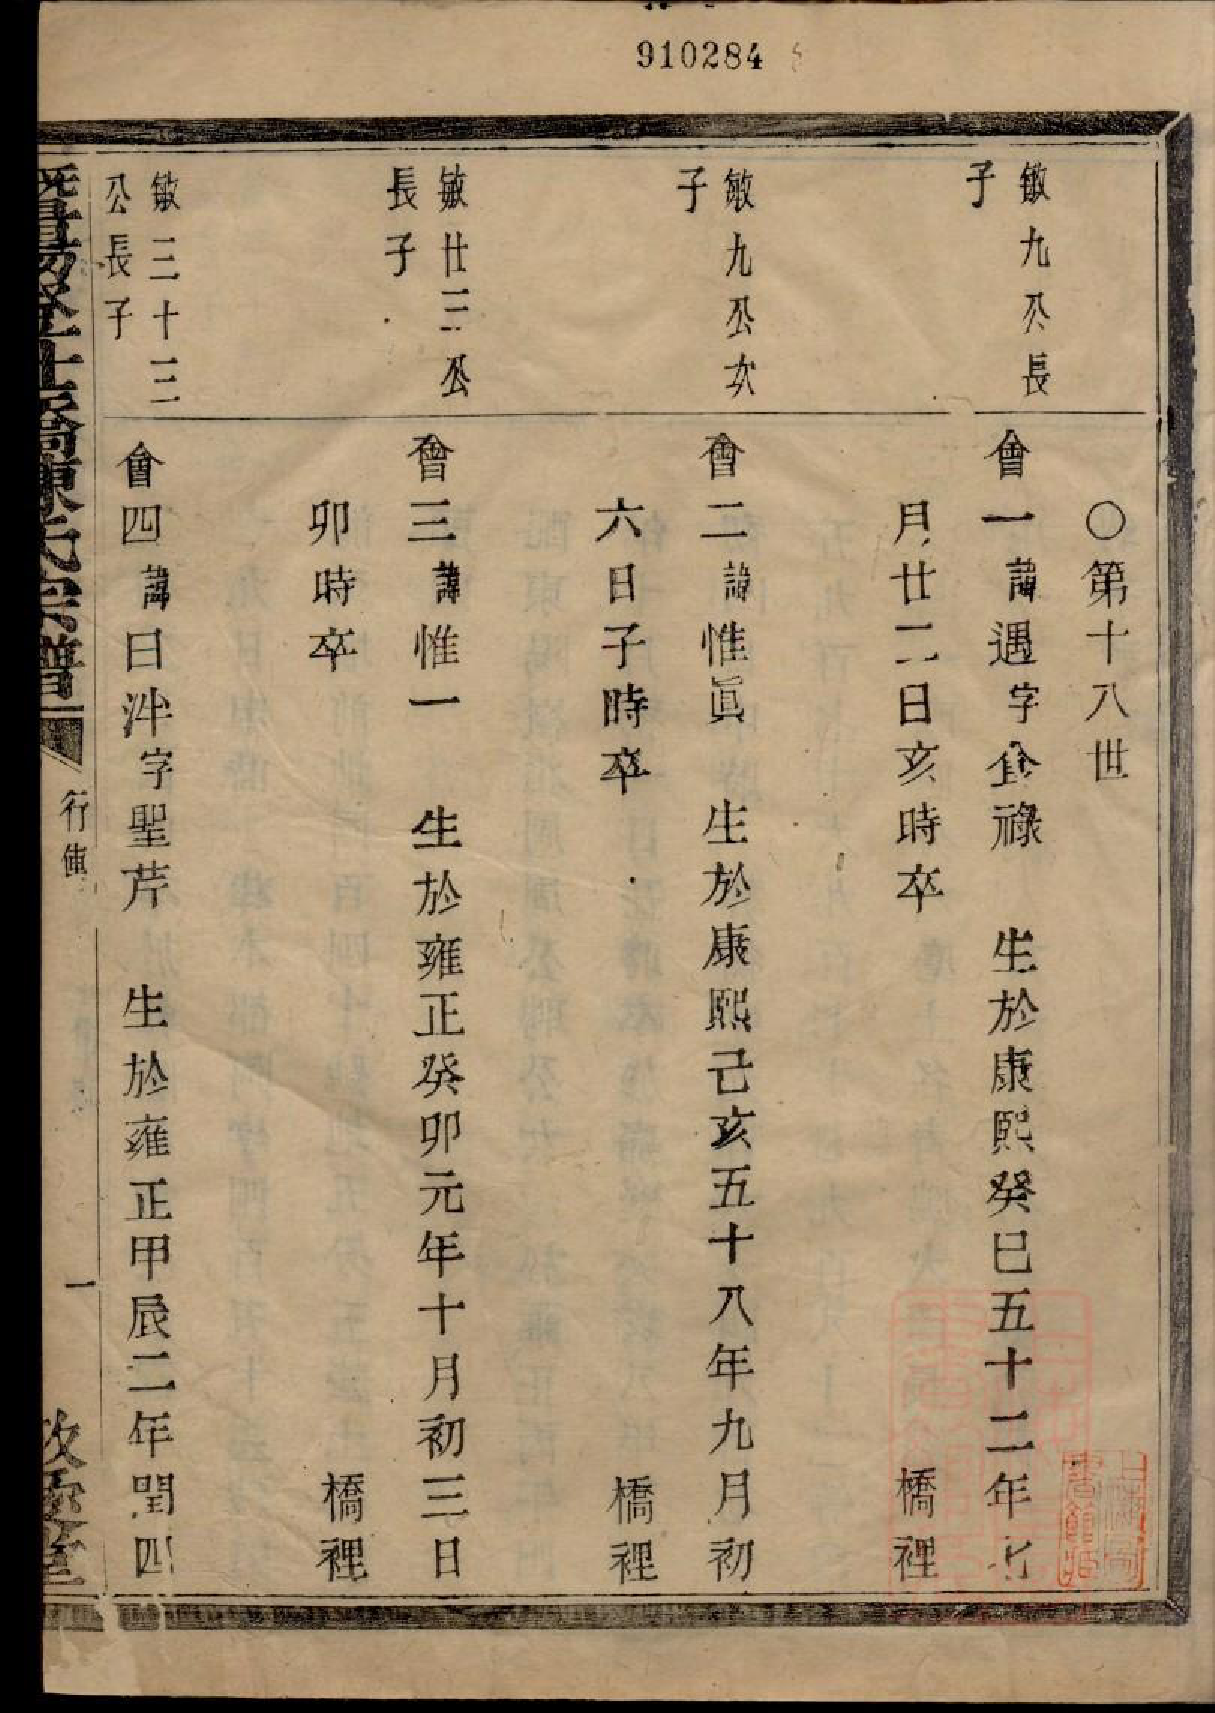 910284
○第十八世
敏九公長
子
會一諱遇字金祿 生於康熙癸巳五十二年七
月廿二日亥時卒 橋裡
敏九公次
子
會二諱惟眞 生於康熙己亥五十八年九月初
六日子時卒 橋裡
敏廿三公
長子
會三諱惟一 生於雍正癸卯元年十月初三日
卯時卒 橋裡
敏三十三
公長子
會四諱曰泮字聖芹 生於雍正甲辰二年閏四
陳氏宗譜
行傳
一